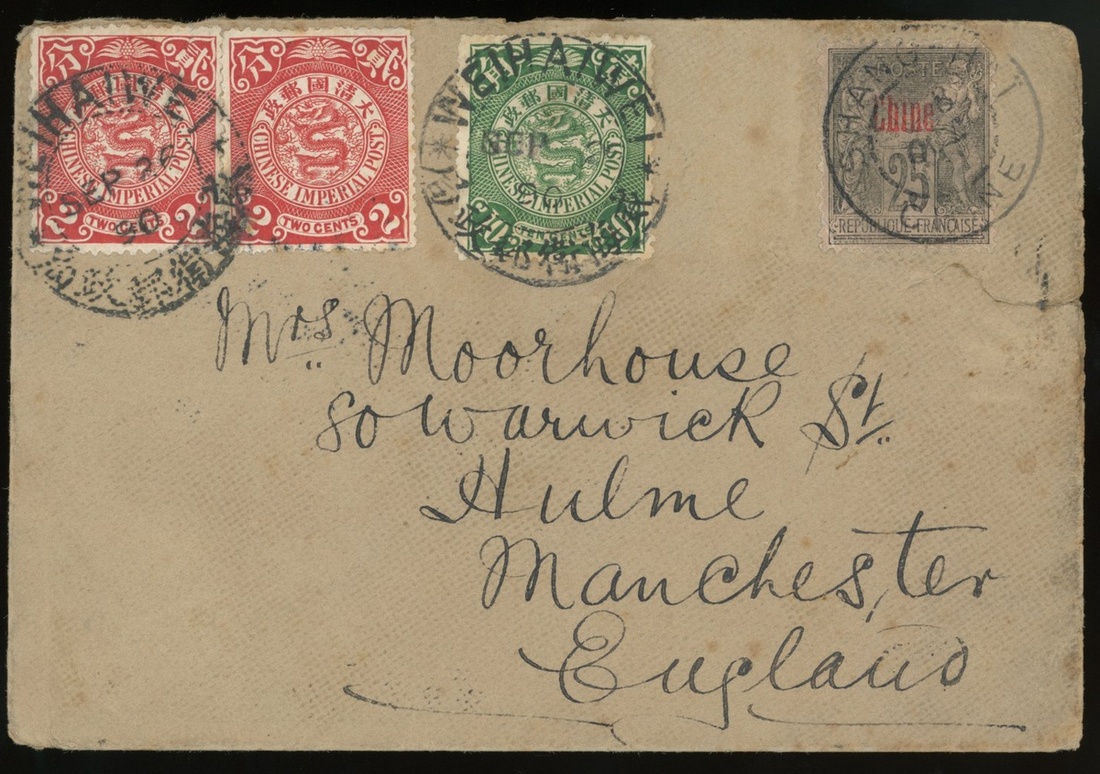 分 貳
大清國郵政
CHINESE IMPERIAL POST
2 TWO CENTS 2
分 貳
大清國郵政
CHINESE IMPERIAL POST
2 TWO CENTS 2
大清國郵政
CHINESE IMPERIAL POST
10 TEN CENTS 10
WEIHAIWEI
SEP 26
WEIHAIWEI
SEP
POSTE
Chine
25
RÉPUBLIQUE FRANÇAISE
SHANG
CHINE
Mrs Moorhouse
80 Warwick St.
Hulme
Manchester
England